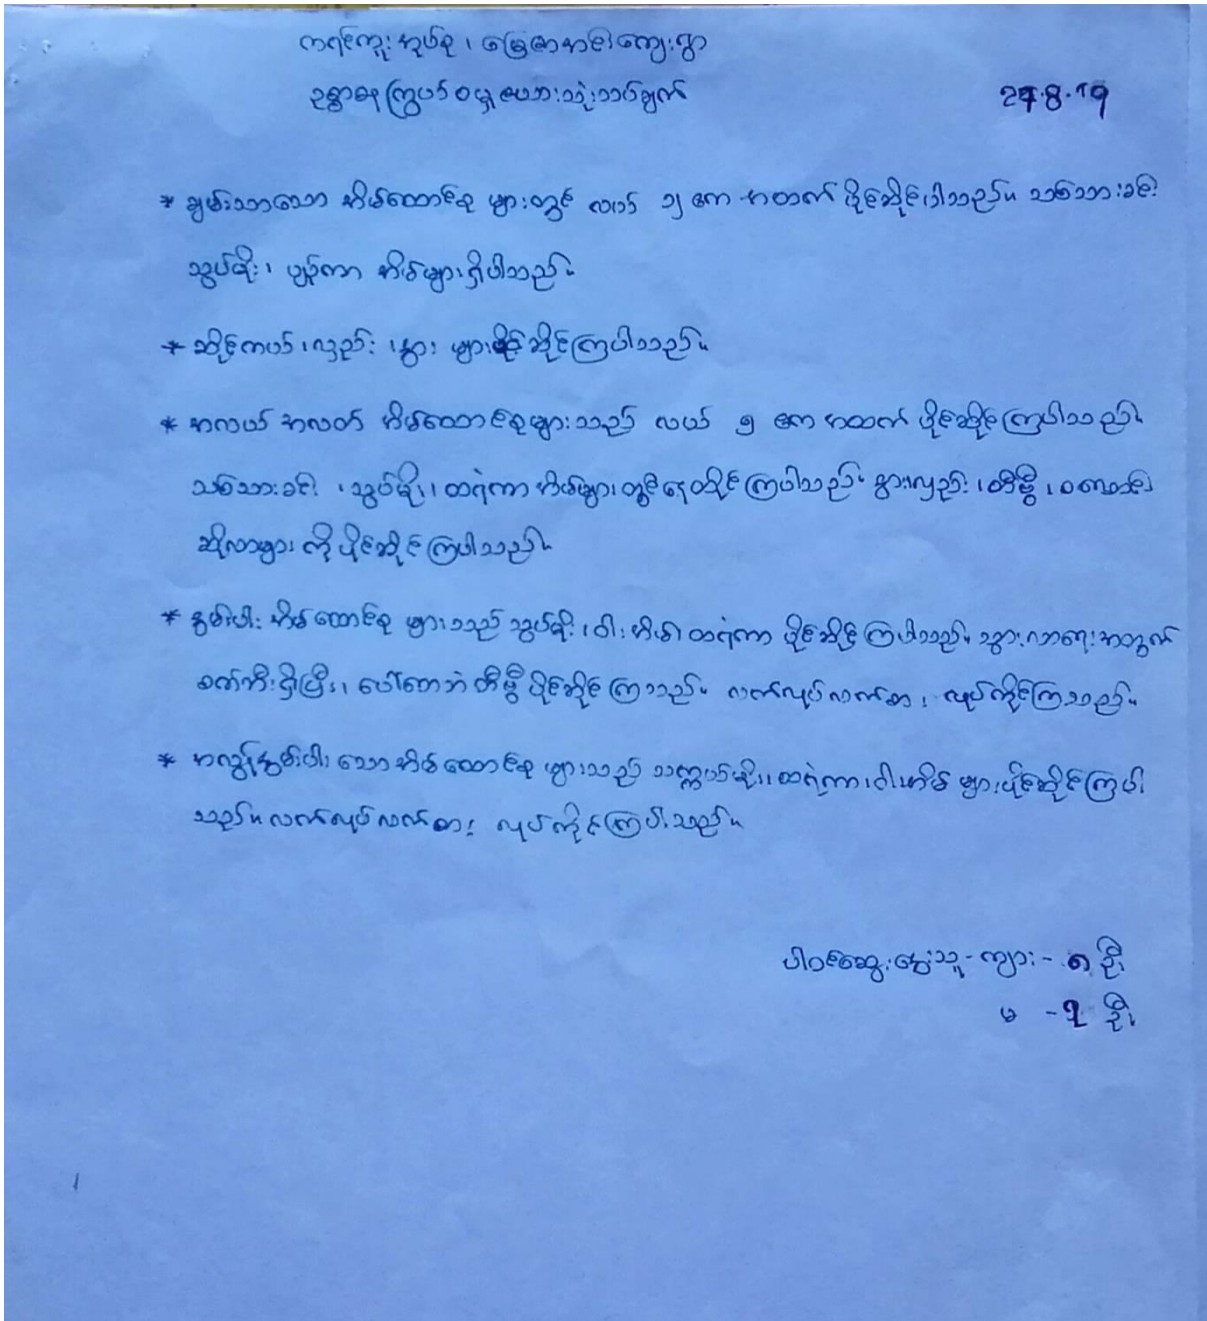 ကရင်ကူးအုပ်စု၊ မြေဇာအင်းကျေးရွာ
ဥစ္စာဓန ကြွယ်ဝမှု ဝေဘားသုံးသပ်ချက်
27.8.19
* ချမ်းသာသော အိမ်ထောင်စု များတွင် လယ် ၁၂ ဧက အထက် ပိုင်ဆိုင်ပါသည်။ သစ်သားခင်း
သွပ်မိုး၊ ပျဉ်ကာ အိမ်များရှိပါသည်။
* ဆိုင်ကယ်၊ လှည်း၊ နွား များပိုင်ဆိုင်ကြပါသည်။
* အလယ်အလတ် အိမ်ထောင်စုများသည် လယ် ၅ ဧက အထက် ပိုင်ဆိုင်ကြပါသည်။
သစ်သားခင်း၊ သွပ်မိုး၊ ထရံကာ အိမ်များတွင်နေထိုင်ကြပါသည်။ နွားလှည်း၊ တီဗွီ၊
ဆိုလာများ ကို ပိုင်ဆိုင်ကြပါသည်။
* နွမ်းပါး အိမ်ထောင်စု များသည် သွပ်မိုး၊ ဝါးအိမ်၊ ထရံကာ ပိုင်ဆိုင်ကြပါသည်။ သွားလာရေးအတွက်
စက်ဘီးရှိပြီး၊ ပေါ်တေဘဲ တီဗွီ ပိုင်ဆိုင်ကြသည်။ လက်လုပ်လက်စား လုပ်ကိုင်ကြသည်။
* အလွန်နွမ်းပါးသောအိမ်ထောင်စု များသည် သက္ကယ်မိုး၊ ထရံကာ၊ ဝါးအိမ် များပိုင်ဆိုင်ကြပါ
သည်။ လက်လုပ်လက်စား လုပ်ကိုင်ကြပါသည်။
ပါဝင်ဆွေးနွေးသူ - ကျား - ၈ ဦး
မ - ၃ ဦး